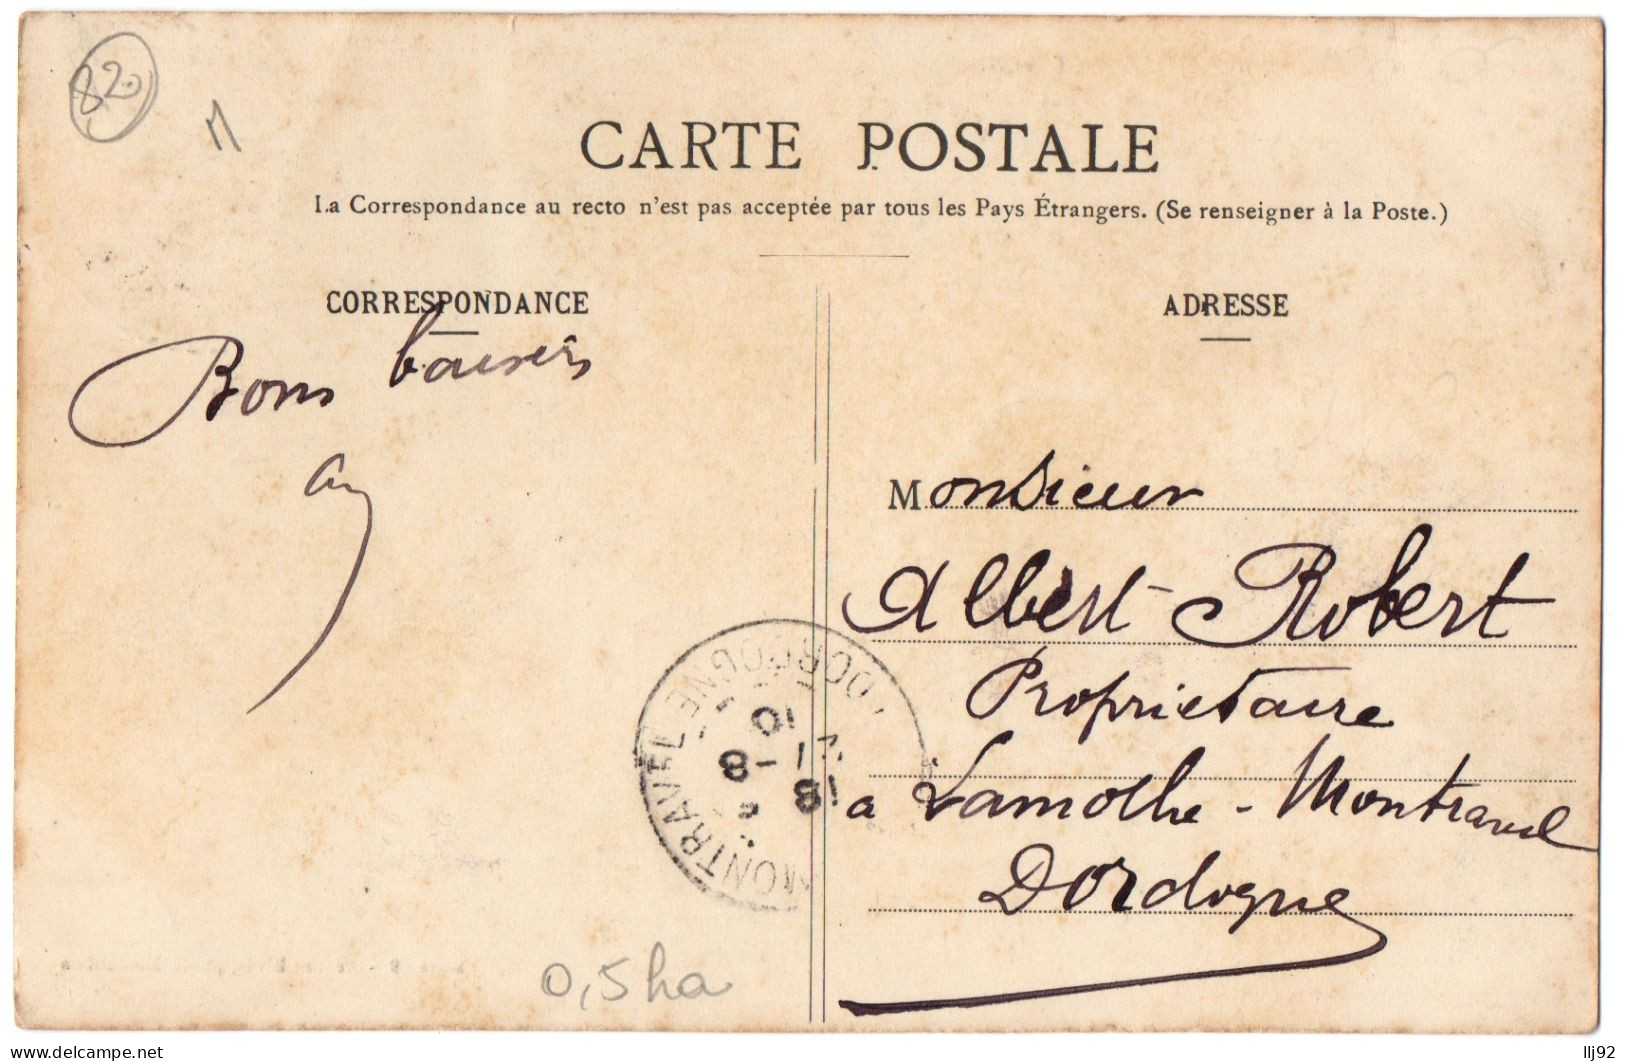 82
M
CARTE POSTALE
La Correspondance au recto n'est pas acceptée par tous les Pays Étrangers. (Se renseigner à la Poste.)
CORRESPONDANCE
ADRESSE
Bons baisers
Monsieur
Albert Robert
Propriétaire
a Lamothe-Montravel
Dordogne
MONTRAVEL DORDOGNE
18
8 - 8
10
0,5ha
www.delcampe.net
llj92